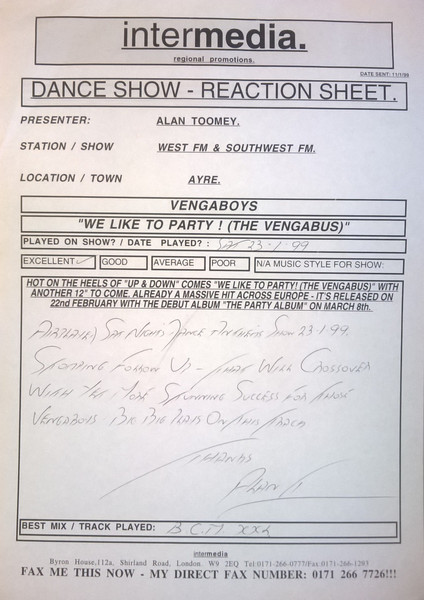 intermedia.
regional promotions.
DATE SENT: 11/1/99
DANCE SHOW - REACTION SHEET.
PRESENTER: ALAN TOOMEY.
STATION / SHOW WEST FM & SOUTHWEST FM.
LOCATION / TOWN AYRE.
VENGABOYS
"WE LIKE TO PARTY ! (THE VENGABUS)"
PLAYED ON SHOW? / DATE PLAYED? : SAT 23-1-99
EXCELLENT ✓ GOOD AVERAGE POOR N/A MUSIC STYLE FOR SHOW:
HOT ON THE HEELS OF "UP & DOWN" COMES "WE LIKE TO PARTY! (THE VENGABUS)" WITH
ANOTHER 12" TO COME. ALREADY A MASSIVE HIT ACROSS EUROPE - IT'S RELEASED ON
22nd FEBRUARY WITH THE DEBUT ALBUM "THE PARTY ALBUM" ON MARCH 8th.
AIRPLAY) SAT NIGHT DANCE ANTHEMS SHOW 23 1 99.
STOMPING FOLLOW UP - THAT WILL CROSSOVER
WITH YET MORE STUNNING SUCCESS FOR THOSE
VENGABOYS BIG PLAYS ON THIS TRACK
THANKS
ALAN T
BEST MIX / TRACK PLAYED: BCM XXL
intermedia
Byron House,112a, Shirland Road, London. W9 2EQ Tel:0171-266-0777/Fax:0171-266-1293
FAX ME THIS NOW - MY DIRECT FAX NUMBER: 0171 266 7726!!!